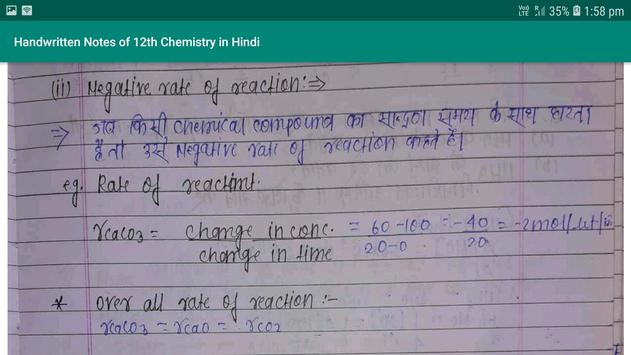 35% 1:58 pm
Handwritten Notes of 12th Chemistry in Hindi
(ii) Negative rate of reaction:⇒
⇒ जब किसी chemical compound का सान्द्रण समय के साथ घटता
है तो उसे Negative rate of reaction कहते हैं।
eg. Rate of reactant.
rCaCO3 = change in conc. / change in time = 60-100 / 20-0 = -40 / 20 = -2mol/
* Over all rate of reaction :-
rCaCO3 = rCaO = rCO2